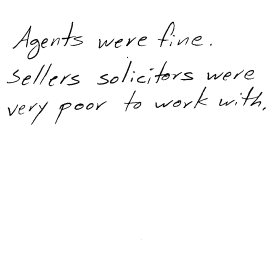 Agents were fine.
Sellers solicitors were
very poor to work with.